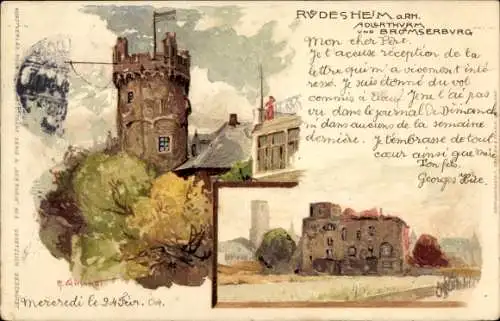 RÜDESHEIM A.RH.
ADLERTHURM
UND BRÖMSERBURG
Mon cher Père.
Je t'accuse réception de ta
lettre qui m'a vivement inté
ressé. Je suis étonné du vol
commis à Elbeuf. Je ne l'ai pas
vu dans le journal de Dimanche
ni dans aucuns de la semaine
dernière. Je t'embrasse de tout
cœur ainsi que
Ton fils.
Georges
Mercredi le 24 Fév. 04.